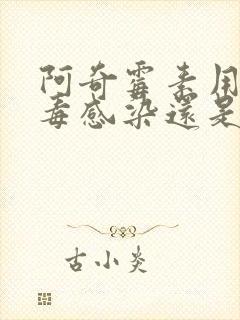 阿奇霉素用
毒感染還是
古小炎